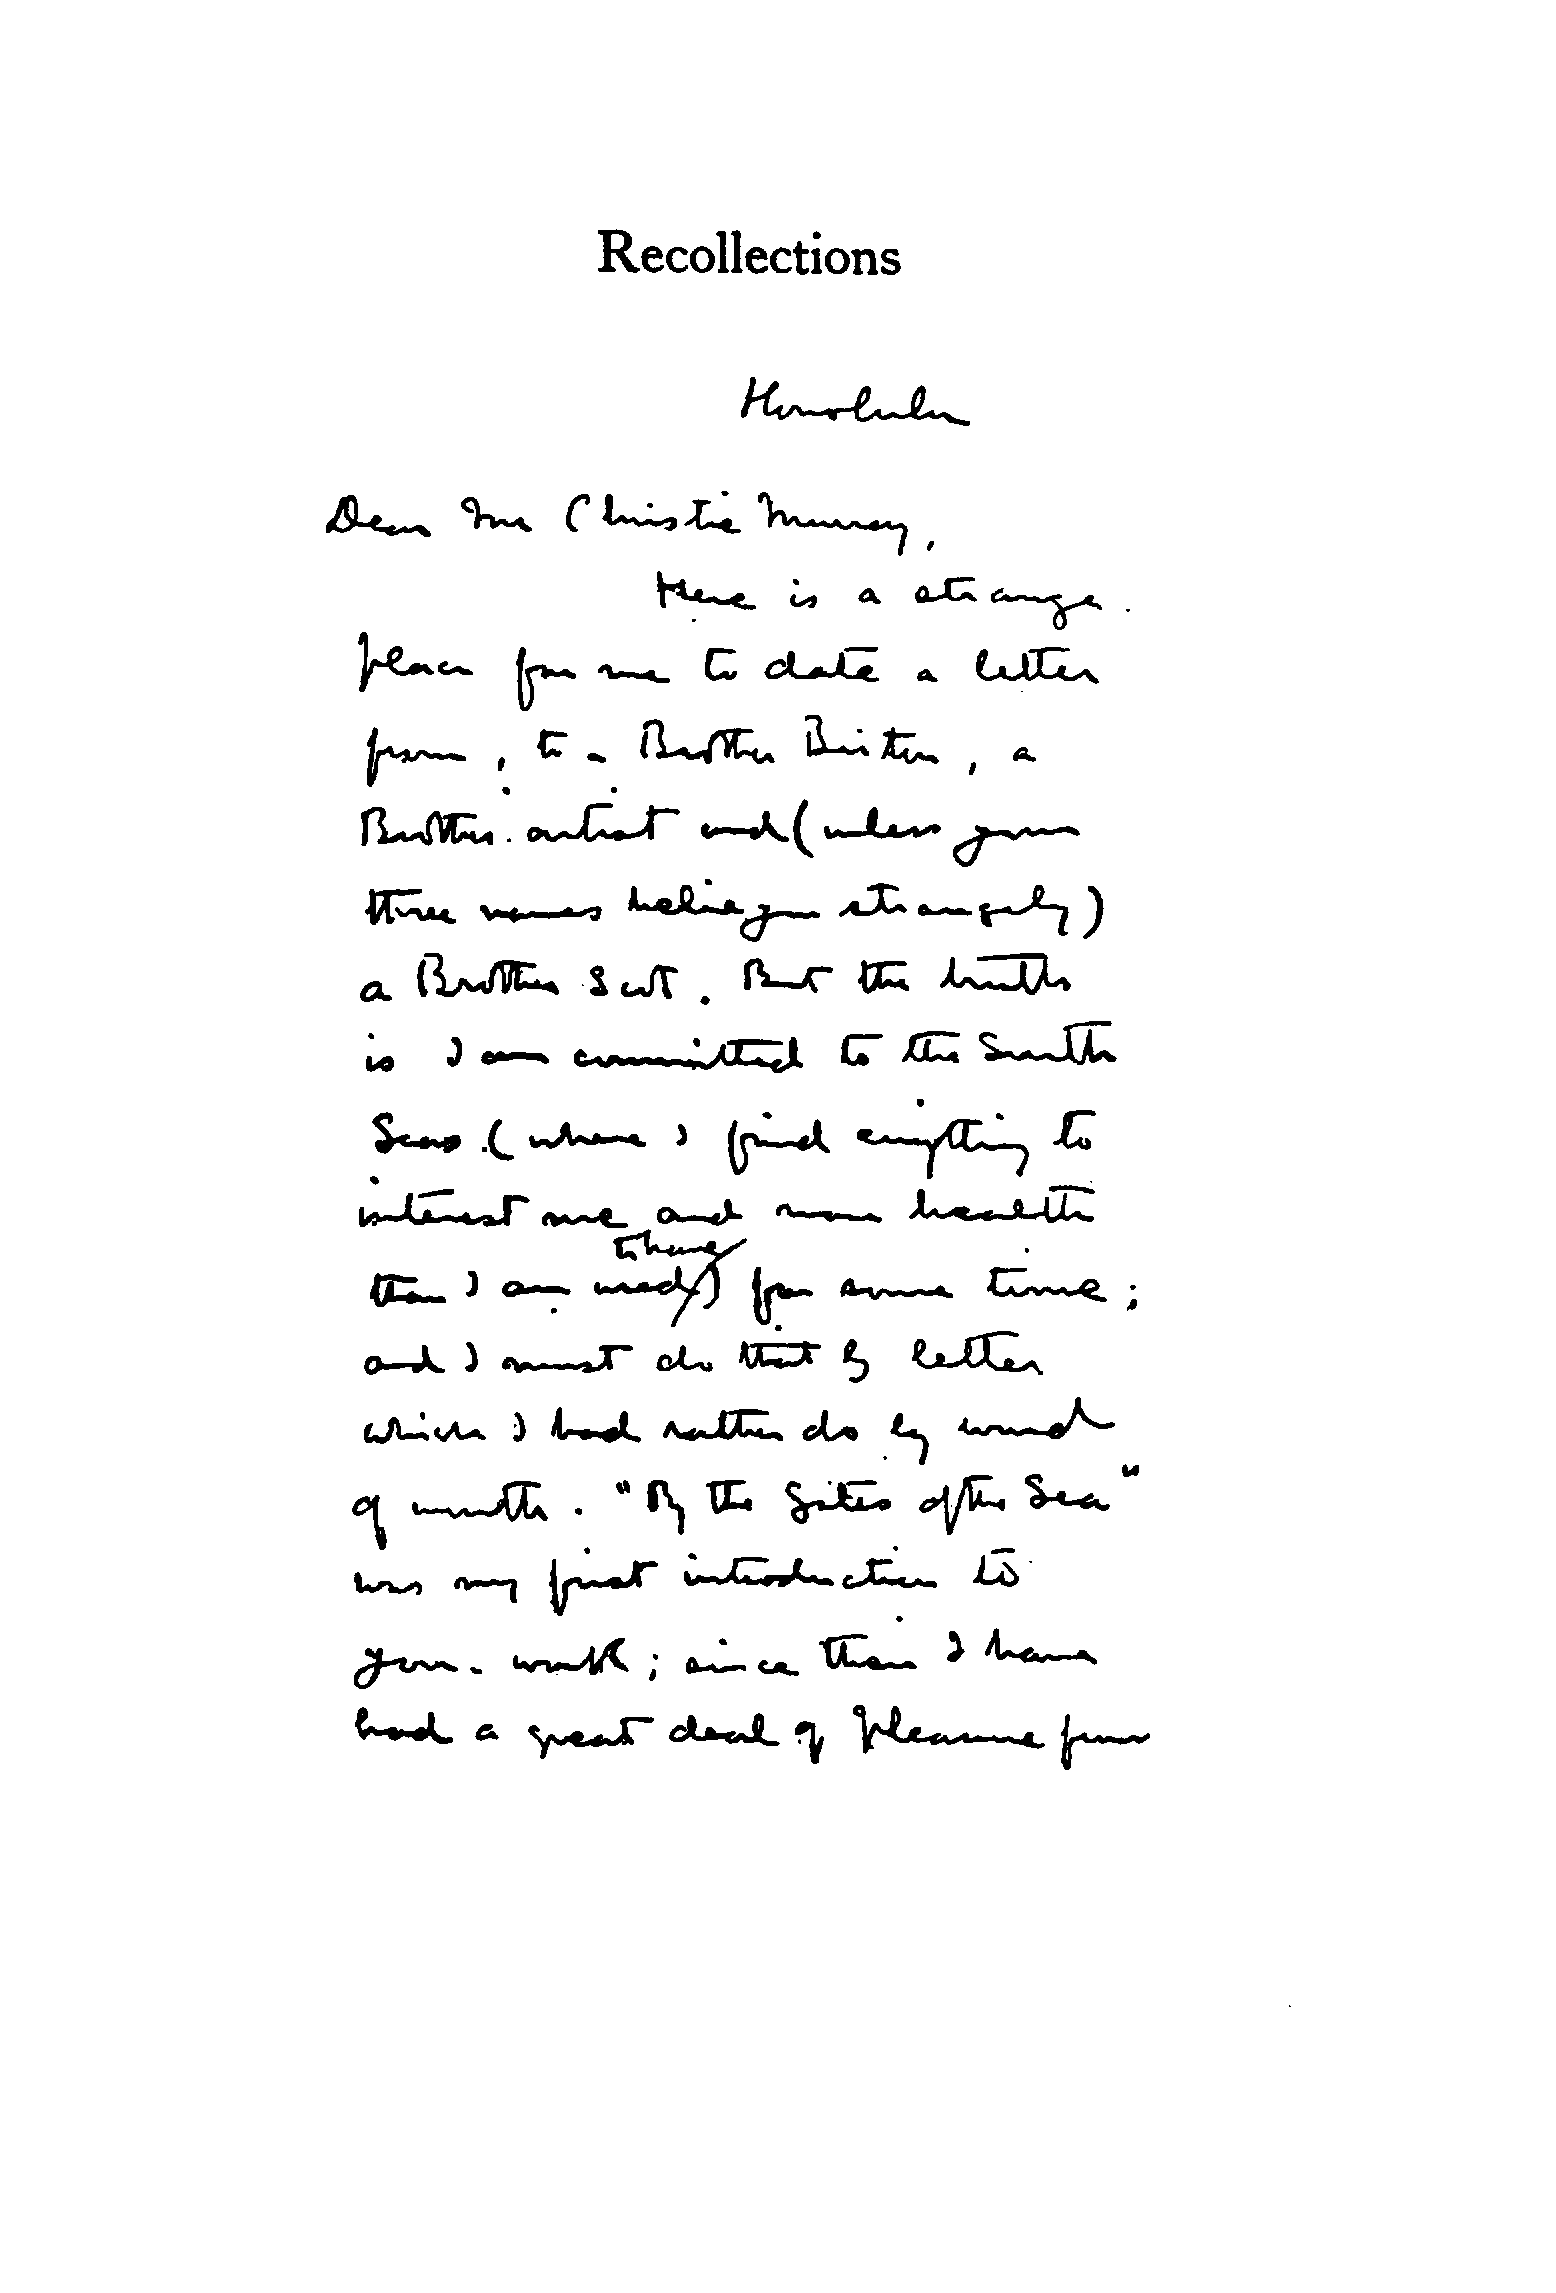 Recollections
Honolulu
Dear Mr Christie Murray,
Here is a strange
place for me to date a letter
from, to a Brother Briton, a
Brother artist and (unless your
three names belie you strangely)
a Brother Scot. But the truth
is I am committed to the South
Seas (where I find everything to
interest me and more health
to have
than I am used) for some time;
and I must do that by letter
which I had rather do by word
of mouth. "By the Gates of the Sea"
was my first introduction to
your work; since then I have
had a great deal of pleasure from